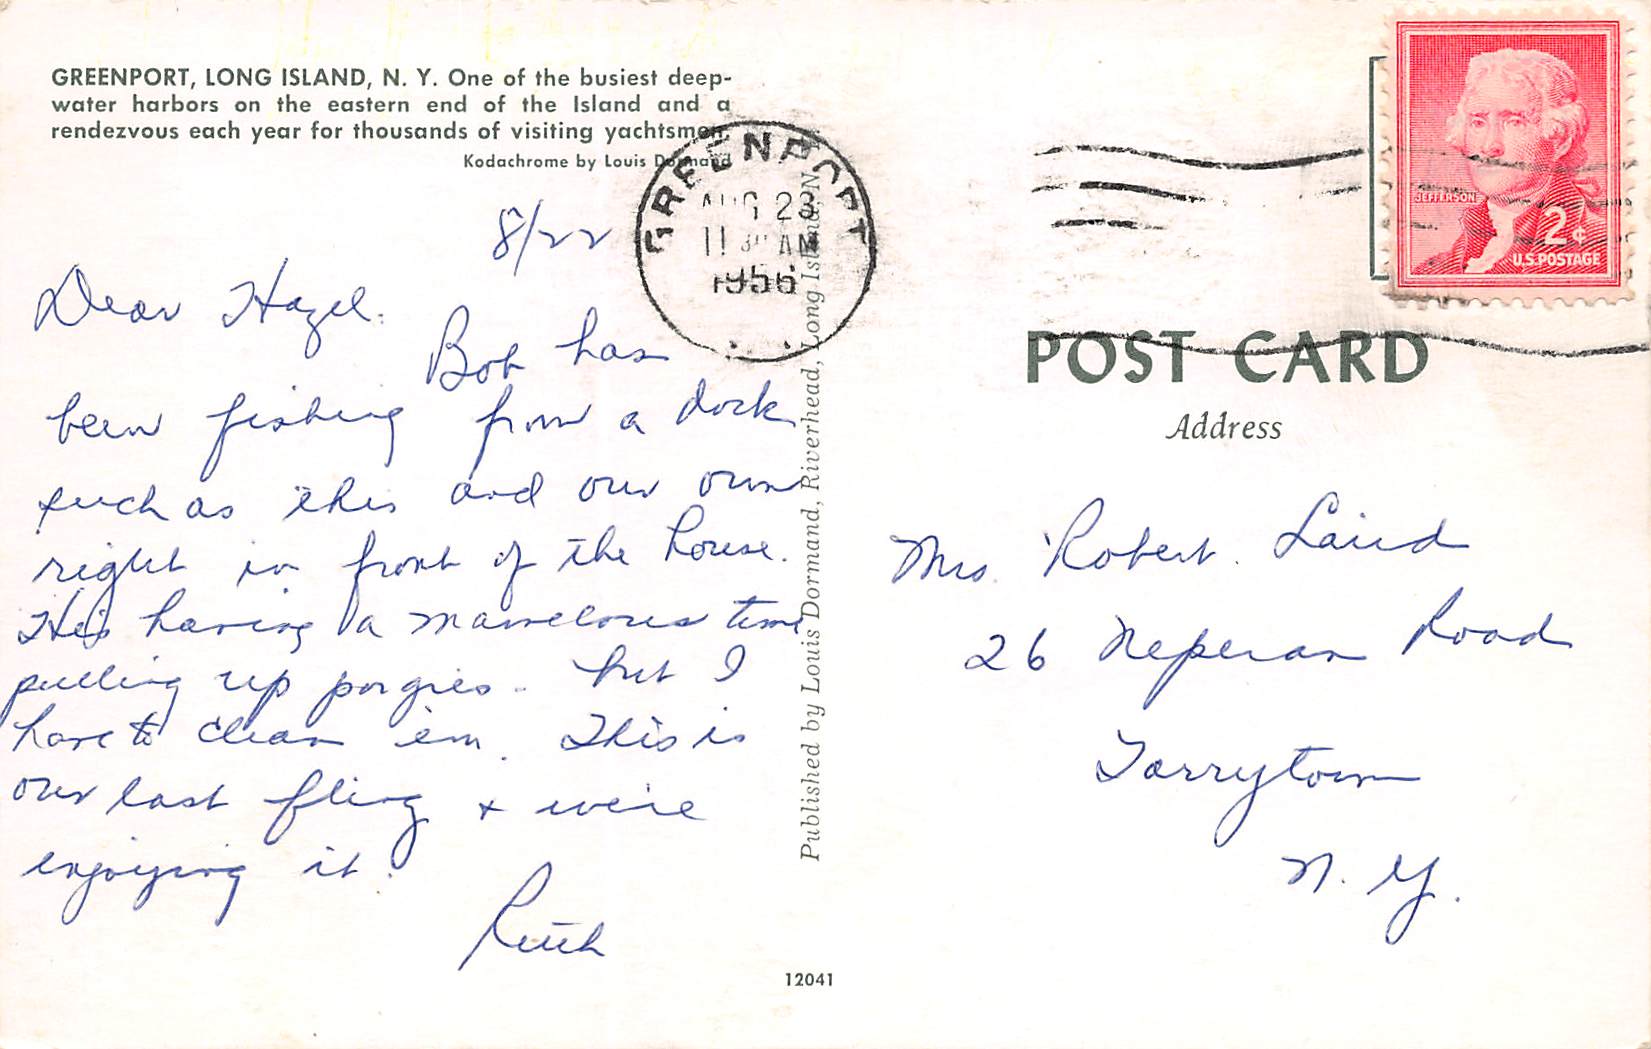 GREENPORT, LONG ISLAND, N. Y. One of the busiest deep-
water harbors on the eastern end of the Island and a
rendezvous each year for thousands of visiting yachtsmen.
Kodachrome by Louis Dormand
8/22
Dear Hazel.
Bob has
been fishing from a dock
such as this and our own
right in front of the house.
He's having a marvelous time
pulling up porgies - but I
have to clean 'em. This is
our last fling & we're
enjoying it.
Ruth
12041
Published by Louis Dormand, Riverhead, Long Island, N
GREENPORT
AUG 23
11 30 AM
1956
JEFFERSON
2¢
U.S. POSTAGE
POST CARD
Address
Mrs. Robert Laird
26 Neperan Road
Tarrytown
N. Y.